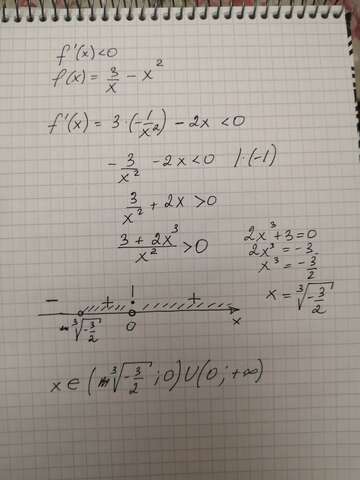 f'(x)<0
f(x) = 3/x - x²
f'(x) = 3·(-1/x²) - 2x < 0
- 3/x² - 2x < 0 |·(-1)
3/x² + 2x > 0
(3 + 2x³)/x² > 0
2x³+3=0
2x³ = -3
x³ = -3/2
x = ∛(-3/2)
- + ! +
∛(-3/2) 0 x
x ∈ (∛(-3/2) ; 0) U (0 ; +∞)